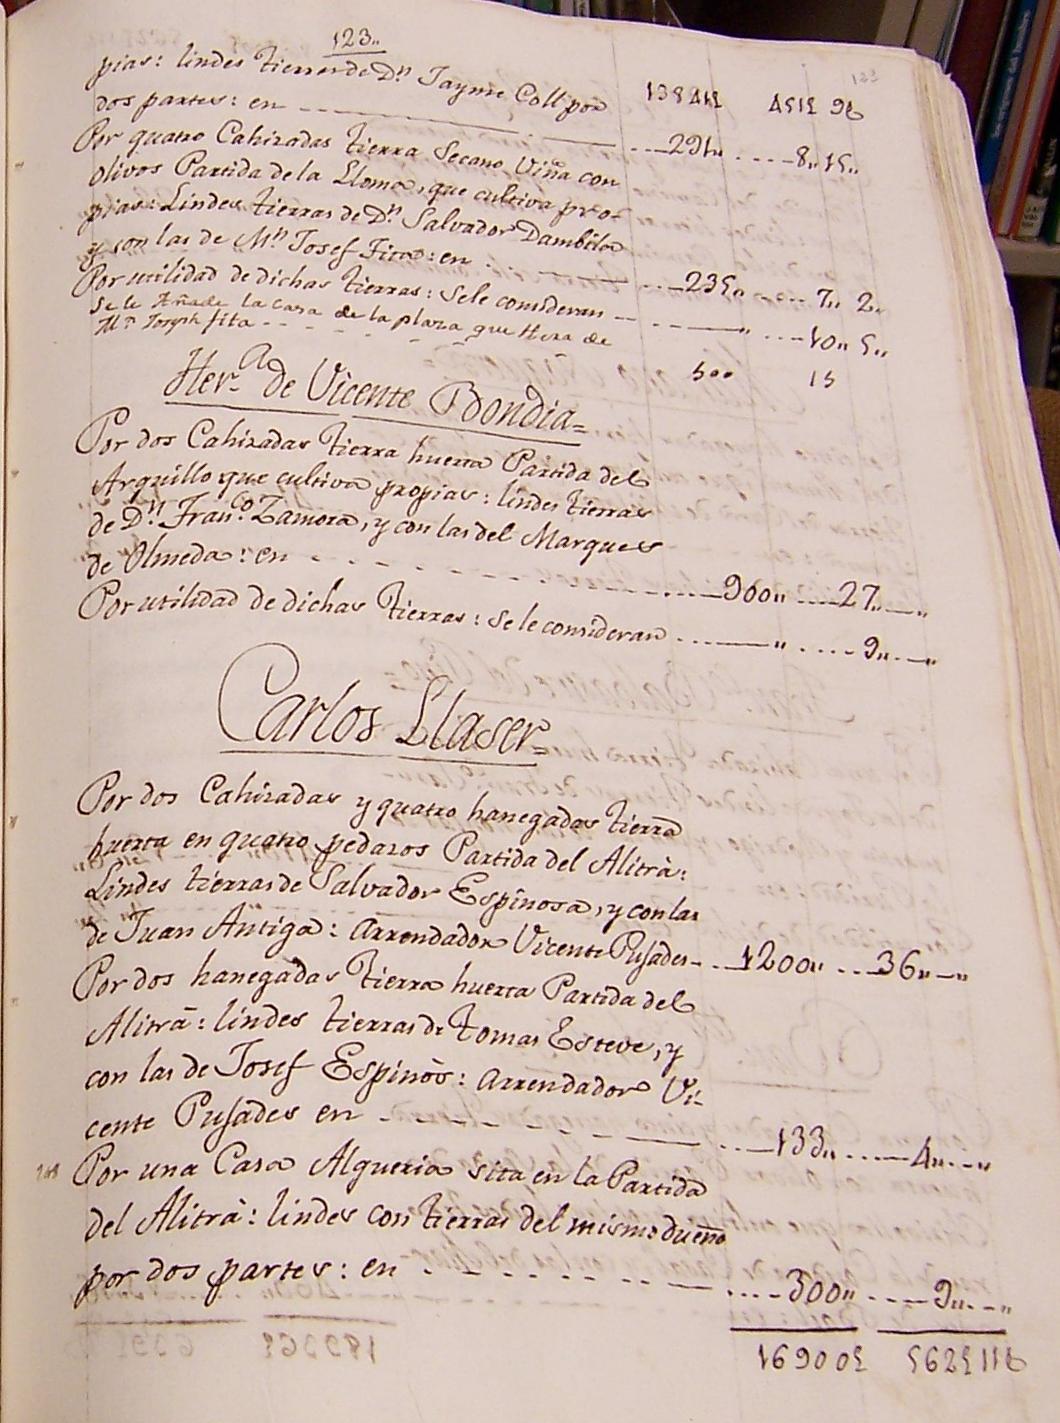 123..
123
pias: lindes tierras de Dn. Jayme Coll por
dos partes: en
291,, 8,, 15,,
Por quatro Cahizadas tierra Secano Viña con
olivos Partida de la Lloma, que cultiva pro-
pias: Lindes tierras de Dn. Salvador Dambila
y con las de Mn. Josef Fita: en 235,, 7,, 2,,
Por utilidad de dichas tierras: se le consideran ,, 10,, 5,,
Se le Añade la casa de la plaza que Hera de
Mn. Joseph fita 500 15
Her.a de Vicente Bondia=
Por dos Cahizadas tierra huerta Partida del
Arquillo que cultiva propias: lindes tierras
de Dn. Fran.co Zamora, y con las del Marques
de Olmeda: en 900,, 27,, ,,
Por utilidad de dichas tierras: se le consideran ,, 9,, ,,
Carlos Llaser=
Por dos Cahizadas y quatro hanegadas tierra
huerta en quatro pedazos Partida del Alitrà:
Lindes tierras de Salvador Espinosa, y con las
de Juan Antiga: Arrendador Vicente Pusades 1200,, 36,, ,,
Por dos hanegadas tierra huerta Partida del
Alitrà: lindes tierras de Tomas Esteve, y
con las de Josef Espinòs: Arrendador Vi-
cente Pusades en 133,, 4,, ,,
Por una Casa Alqueria sita en la Partida
del Alitrà: lindes con tierras del mismo dueño
por dos partes: en 300,, 9,, ,,